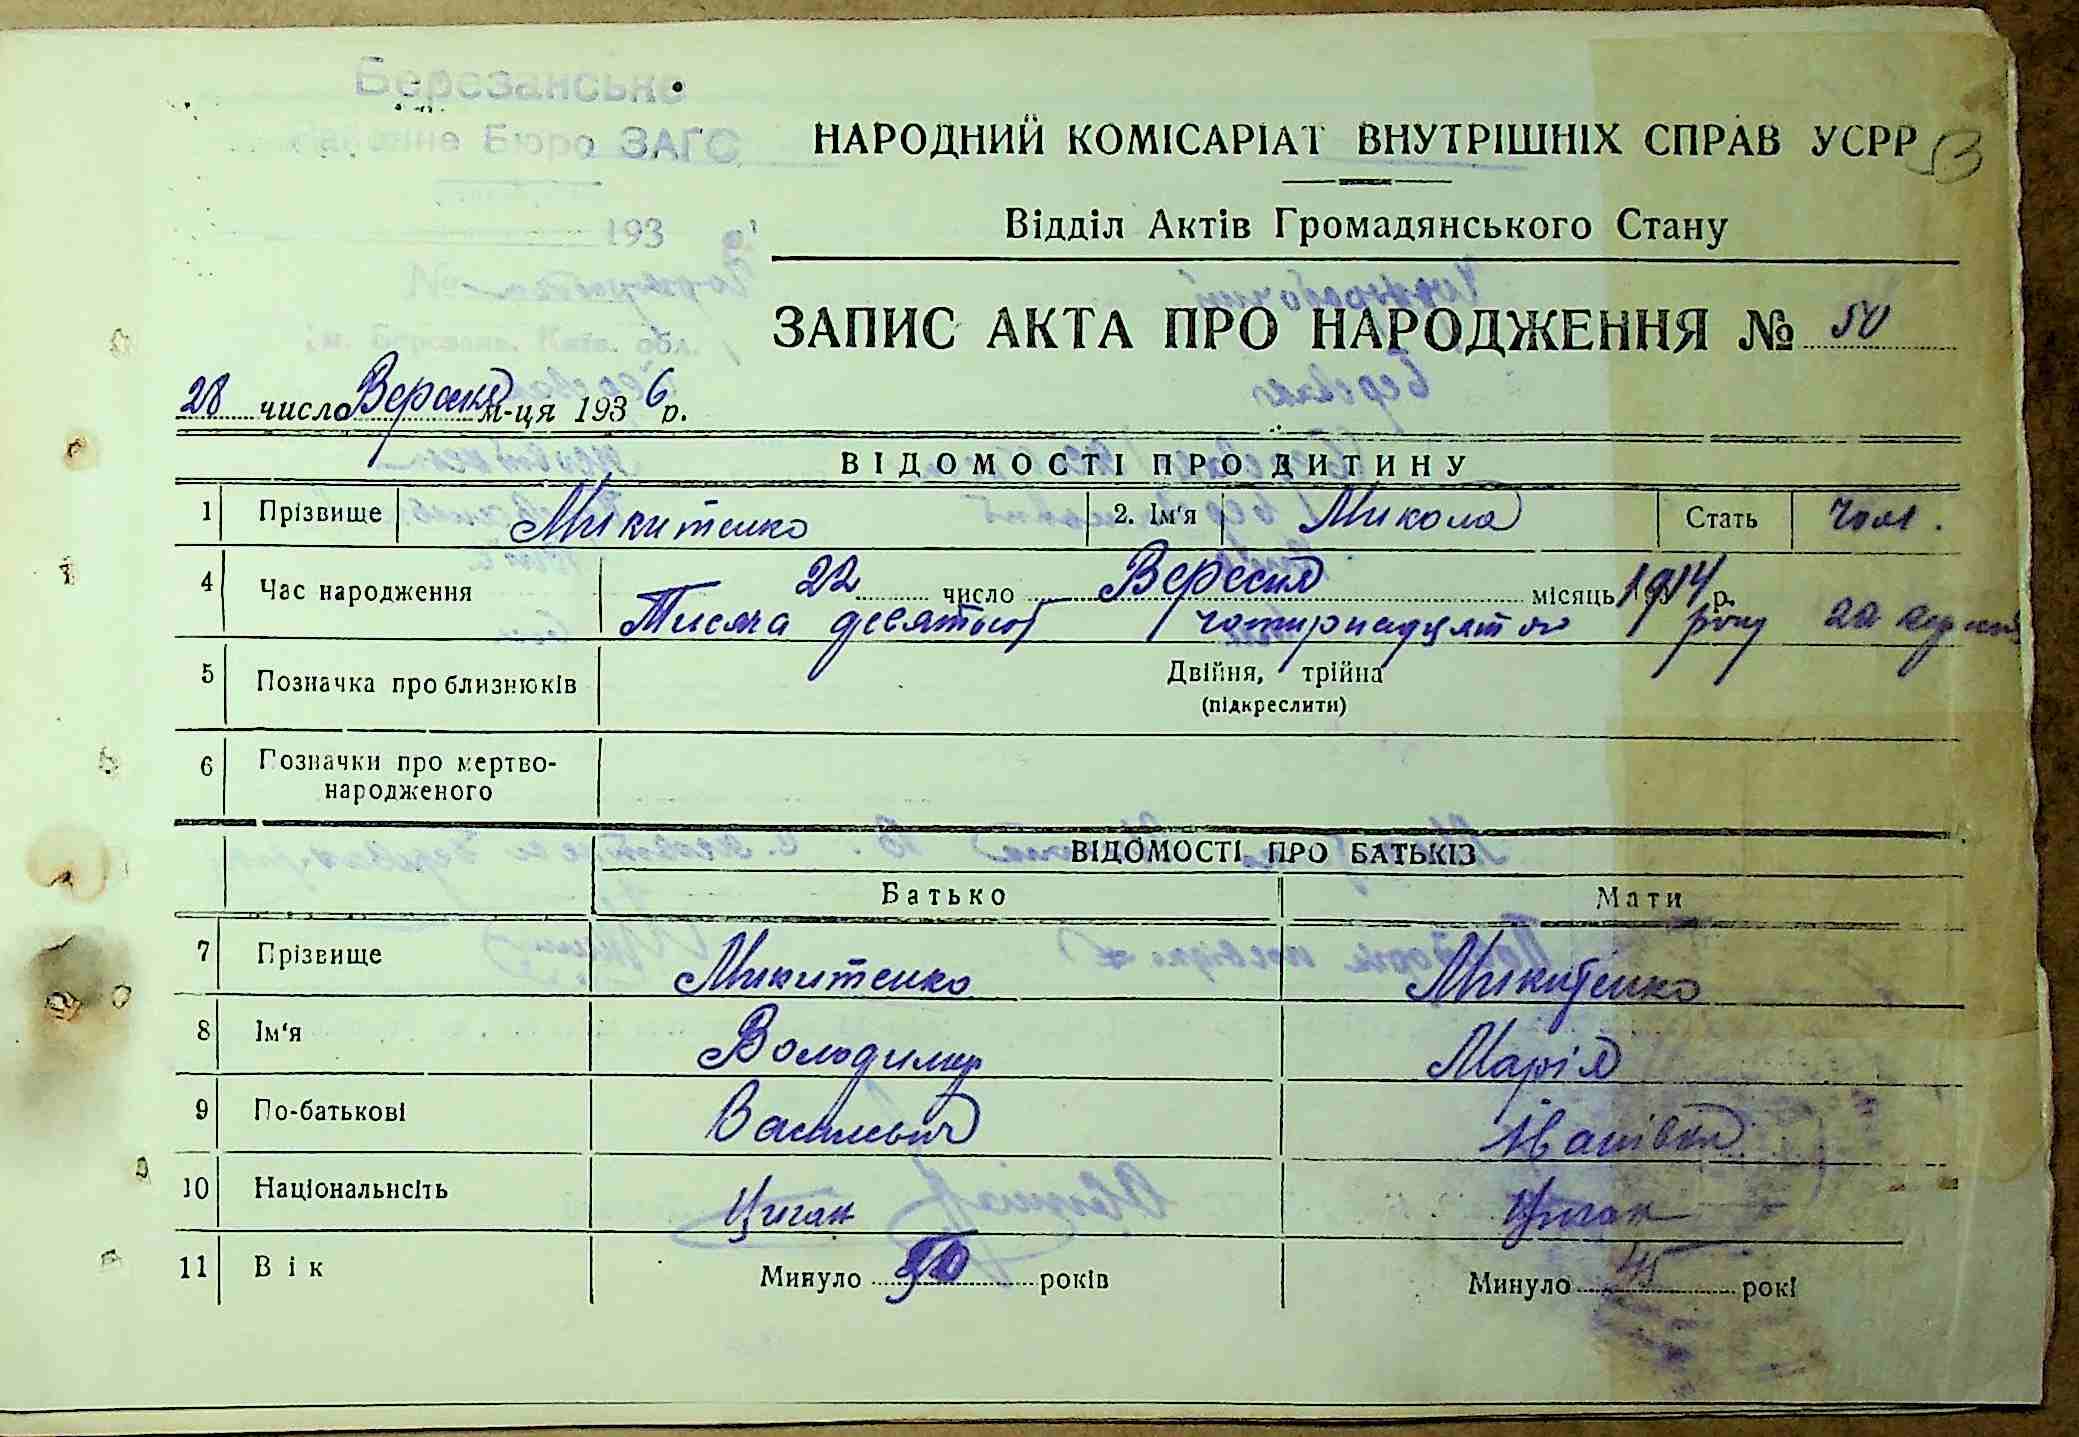 Березанське
Районне Бюро ЗАГС
193
м. Березань, Київ. обл.
НАРОДНИЙ КОМІСАРІАТ ВНУТРІШНІХ СПРАВ УСРР
Відділ Актів Громадянського Стану
ЗАПИС АКТА ПРО НАРОДЖЕННЯ № 50
28 число Вересня м-ця 1936 р.
ВІДОМОСТІ ПРО ДИТИНУ
1 Прізвище Микитенко 2. Ім'я Микола Стать чол.
4 Час народження 22 число Вересня місяць 1914 р.
Тисяча девятсот чотирнадцятого року 22
5 Позначка про близнюків Двійня, трійна
(підкреслити)
6 Позначки про мертво-
народженого
ВІДОМОСТІ ПРО БАТЬКІВ
Батько Мати
7 Прізвище Микитенко Микитенко
8 Ім'я Володимир Марія
9 По-батькові Васильович Іванівна
10 Національність Циган Циган
11 Вік Минуло 50 років Минуло 45 рокі